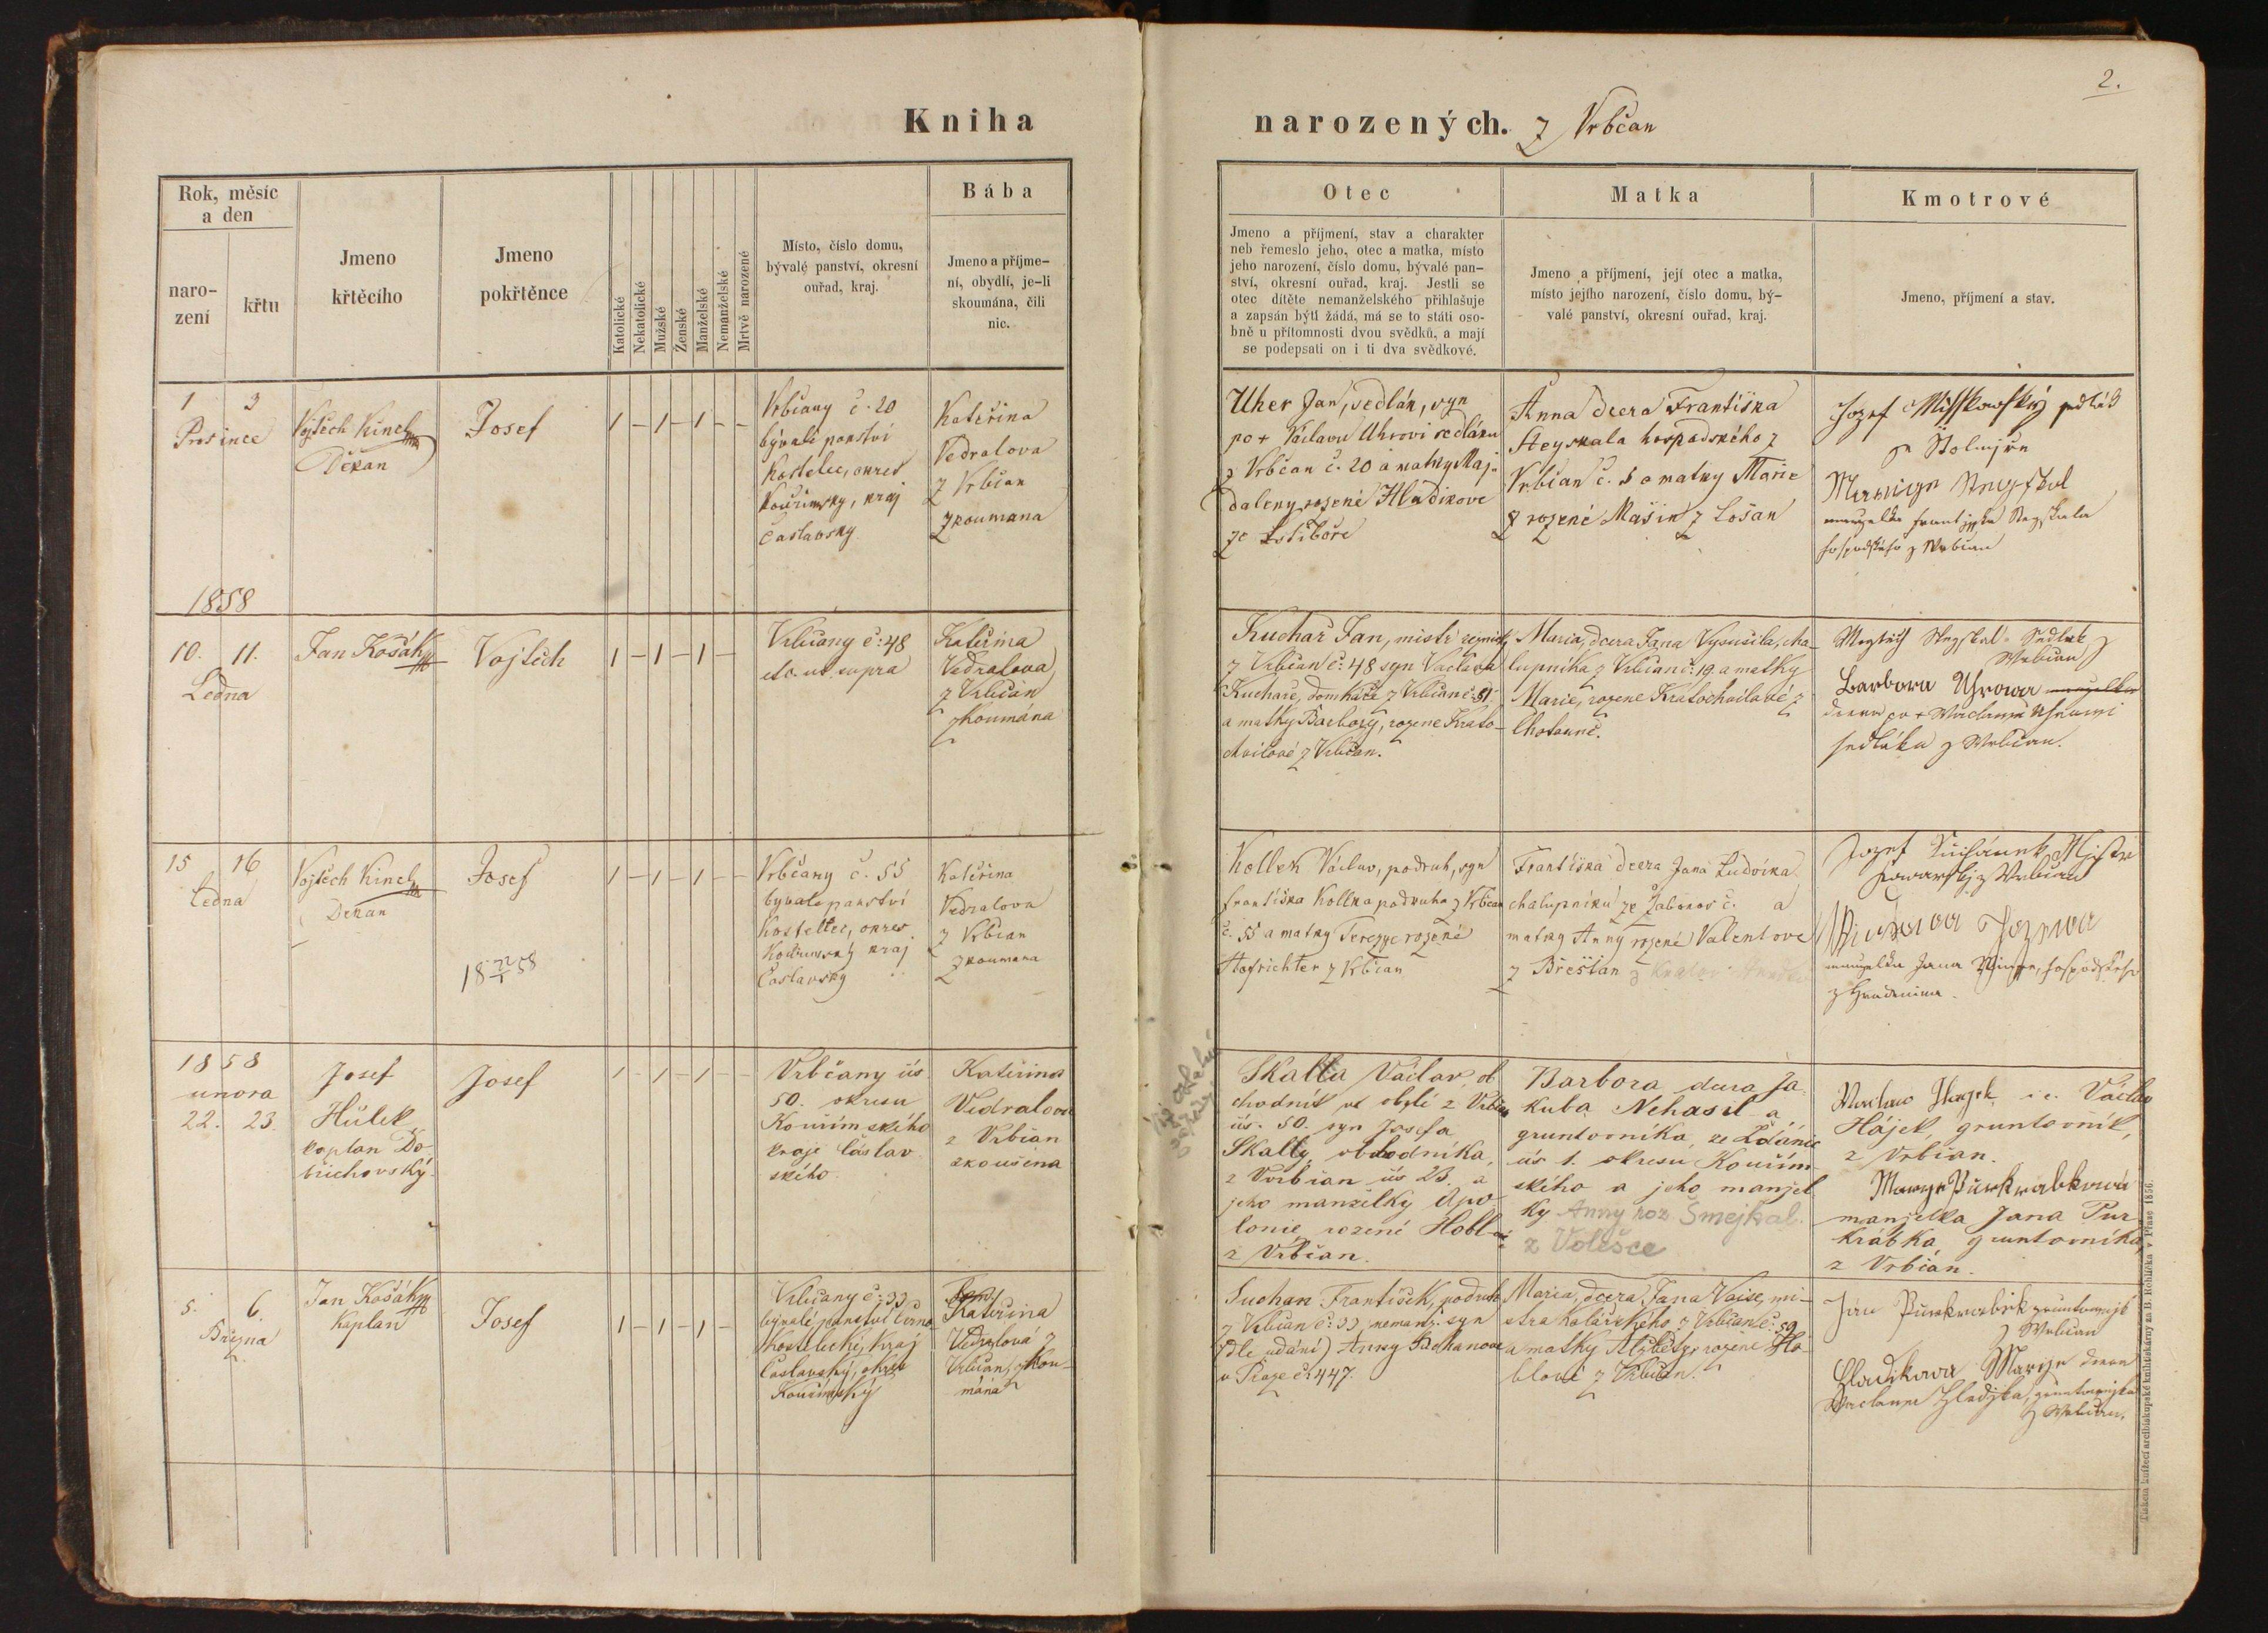 2.
Kniha
narozených. z Vrbčan
Rok, měsíc
a den
naro-
zení
křtu
Jmeno
křtěcího
Jmeno
pokřtěnce
Katolické
Nekatolické
Mužské
Ženské
Manželské
Nemanželské
Mrtvě narozené
Místo, číslo domu,
bývalé panství, okresní
ouřad, kraj.
Bába
Jmeno a příjme-
ní, obydlí, je-li
skoumána, čili
nic.
Otec
Jmeno a příjmení, stav a charakter
neb řemeslo jeho, otec a matka, místo
jeho narození, číslo domu, bývalé pan-
ství, okresní ouřad, kraj. Jestli se
otec dítěte nemanželského přihlašuje
a zapsán býti žádá, má se to státi oso-
bně u přítomnosti dvou svědků, a mají
se podepsati on i ti dva svědkové.
Matka
Jmeno a příjmení, její otec a matka,
místo jejího narození, číslo domu, bý-
valé panství, okresní ouřad, kraj.
Kmotrové
Jmeno, příjmení a stav.
1 3
Prosince
Vojtěch Kinel
Děkan
Josef
1 – 1 – 1 – –
Vrbčany č. 20
bývalé panství
Kostelec, okres
Kouřimsky, kraj
Časlavsky
Kateřina
Vedralova
z Vrbčan
zkoumana
Uher Jan, sedlák, syn
po + Václavu Uhrovi sedláku
z Vrbčan č. 20 a matky Maj-
daleny rozené Hladikove
ze Lstiboře
Anna dcera Františka
Steyskala hospodského z
Vrbčan č. 5 a matky Marie
rozené Mašin z Lošan
Jozef Misskowský sedlák
Marige Steyskal
manzelka Frantisska Stegskala
hospodského z Wrbčan
1858
10. 11.
Ledna
Jan Košák
Vojtěch
1 – 1 – 1 –
Vrbčany č: 48
etc. ut supra
Kateřina
Vedralova
z Vrbčan
zkoumána
Kuchař Jan, mistr
z Vrbčan č: 48 syn Václava
Kuchaře, domkaře z Vrbčan č: 51,
a matky Barbory, rozene Krato-
chvilové z Vrbčan.
Maria, dcera Jana Vypusila, cha-
lupníka z Vrbčan č: 19 a matky
Marie, rozene Kratochvilové z
Chotouně.
Wogtěch Stegskal Sedlak z
Wrbčan
Barbora Uhrowa manzelka
dcera po + Waclawu Uhrowi
sedláka z Wrbčan.
15 16
Ledna
Vojtěch Kinel
Děkan
Josef
1 – 1 – 1 – –
Vrbčany č. 55
byvale panství
Kostelec, okres
Kouřimský kraj
Časlavský
Kateřina
Vedralova
z Vrbčan
zkoumana
Kollek Václav, podruh, syn
Františka Kollka podruha z Vrbčan
č. 55 a matky Terezye rozené
Hofrichter z Vrbčan
Františka dcera Jana Ludvíka
chalupníku ze Žabonos č. a
matky Anny rozené Valentove
z Břeštan
Jozef
manzelka Jana hospodského
z Hradenina.
1858
unora
22. 23.
Josef
Hůlek
kaplan Do-
břichovský.
Josef
1 – 1 – 1 – –
Vrbčany čís.
50. okresu
Kouřimského
kraje Čáslav
ského.
Kateřina
Vedralova
z Vrbčan
zkoušena
Skalla Václav, ob
chodník
čís. 50. syn Josefa
Skally, obchodníka,
z Vrbčan čís 23. a
jeho manželky Apo
lonie, rozené Hobl
z Vrbčan.
Barbora dcera Ja
kuba Nehasil a
gruntovníka, ze Ždánic
čís 1. okresu Kouřim
ského a jeho manžel
ky Anny roz. Smejkal.
z Volešce
Waclaw Hagek i.e. Václav
Hájek, gruntovník,
z Vrbčan.
Marye Purkrabkowá
manželka Jana Pur
krábka gruntovníka,
z Vrbčan.
5. 6.
Března
Jan Košák
Kaplan
Josef
1 – 1 – 1 –
Vrbčany č: 33
bývalé panství Černo
Kostelecké, Kraj
Časlavský, okres
Kouřimský
Kateřina
Vedralová z
Vrbčan, zkou-
mána
Suchan František, podruh
z Vrbčan č: 33 nemanž. syn
(dle udání) Anny Suchanové
v Praze č: 447.
Maria, dcera Jana Vaise, mi-
stra kolářského z Vrbčan č. 59
a matky Alžběty, rozené Ho-
blové z Vrbčan.
Jan Purkrabek gruntownjk
z Wrbčan
Hladikowa Marye dcera
Waclawa Hladjka, gruntownjka
z Wrbčan.
Tiskem knížecí arcibiskupské knihtiskárny za B. Rohlíčka v Praze 1856.